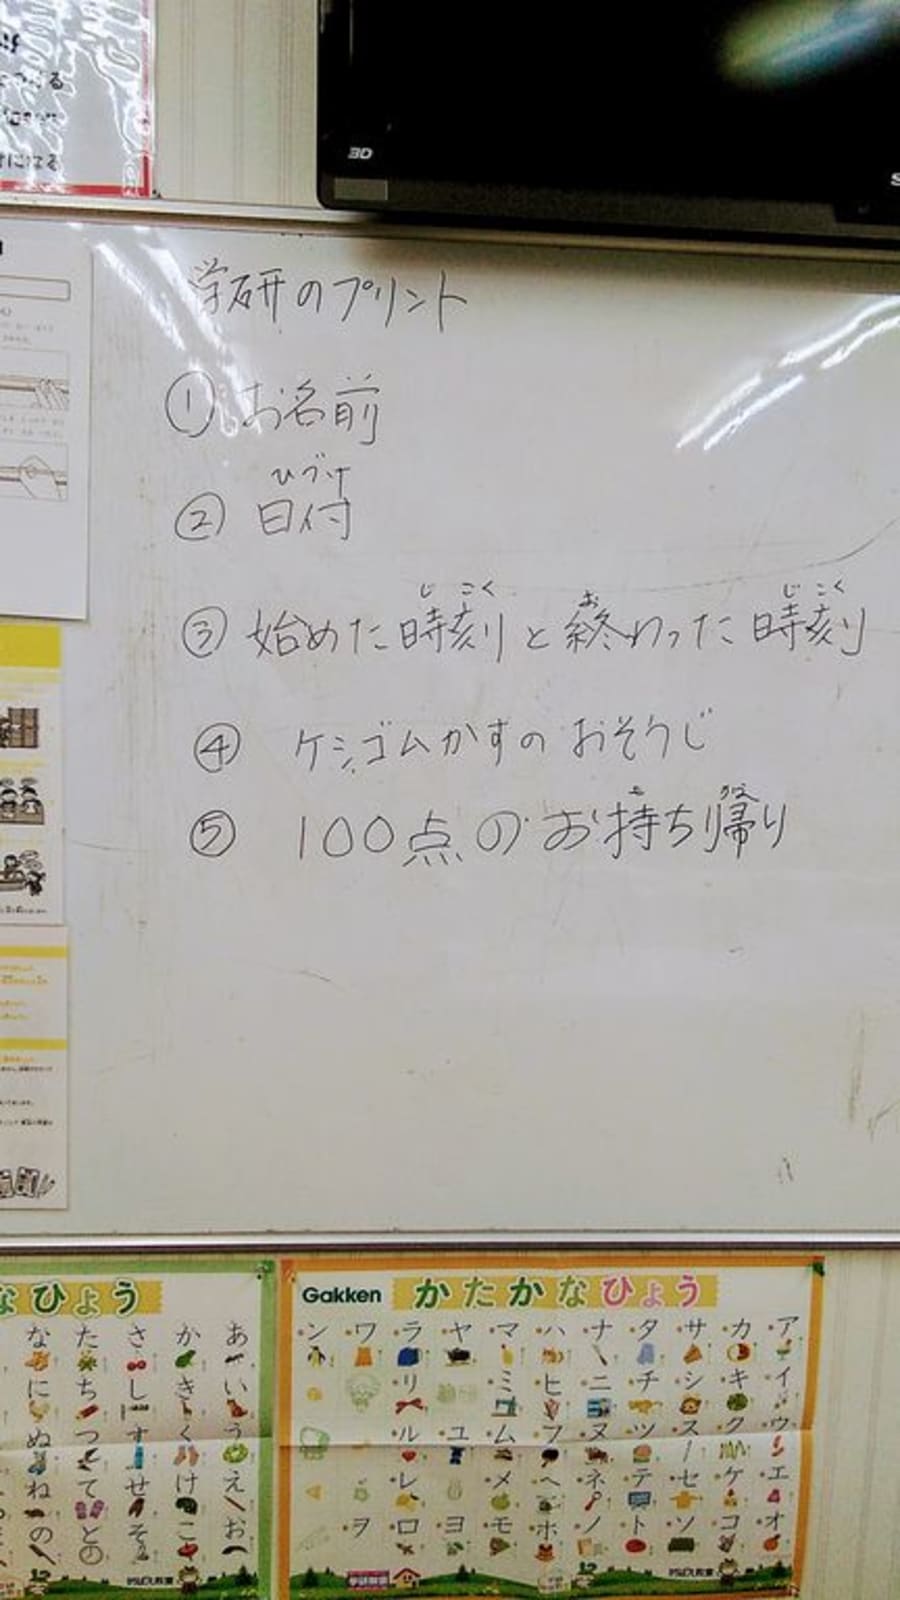 つける
になる
3D
学研のプリント
① お名前
ひづけ
② 日付
じこく お じこく
③ 始めた時刻と終わった時刻
④ ケシゴムかすのおそうじ
も かえ
⑤ 100点のお持ち帰り
なひょう
な た さ か あ
に ち し き い
ぬ つ す く う
ね て せ け え
の と そ こ お
Gakken かたかなひょう
ン ワ ラ ヤ マ ハ ナ タ サ カ ア
リ ミ ヒ ニ チ シ キ イ
ル ユ ム フ ヌ ツ ス ク ウ
レ メ ヘ ネ テ セ ケ エ
ヲ ロ ヨ モ ホ ノ ト ソ コ オ